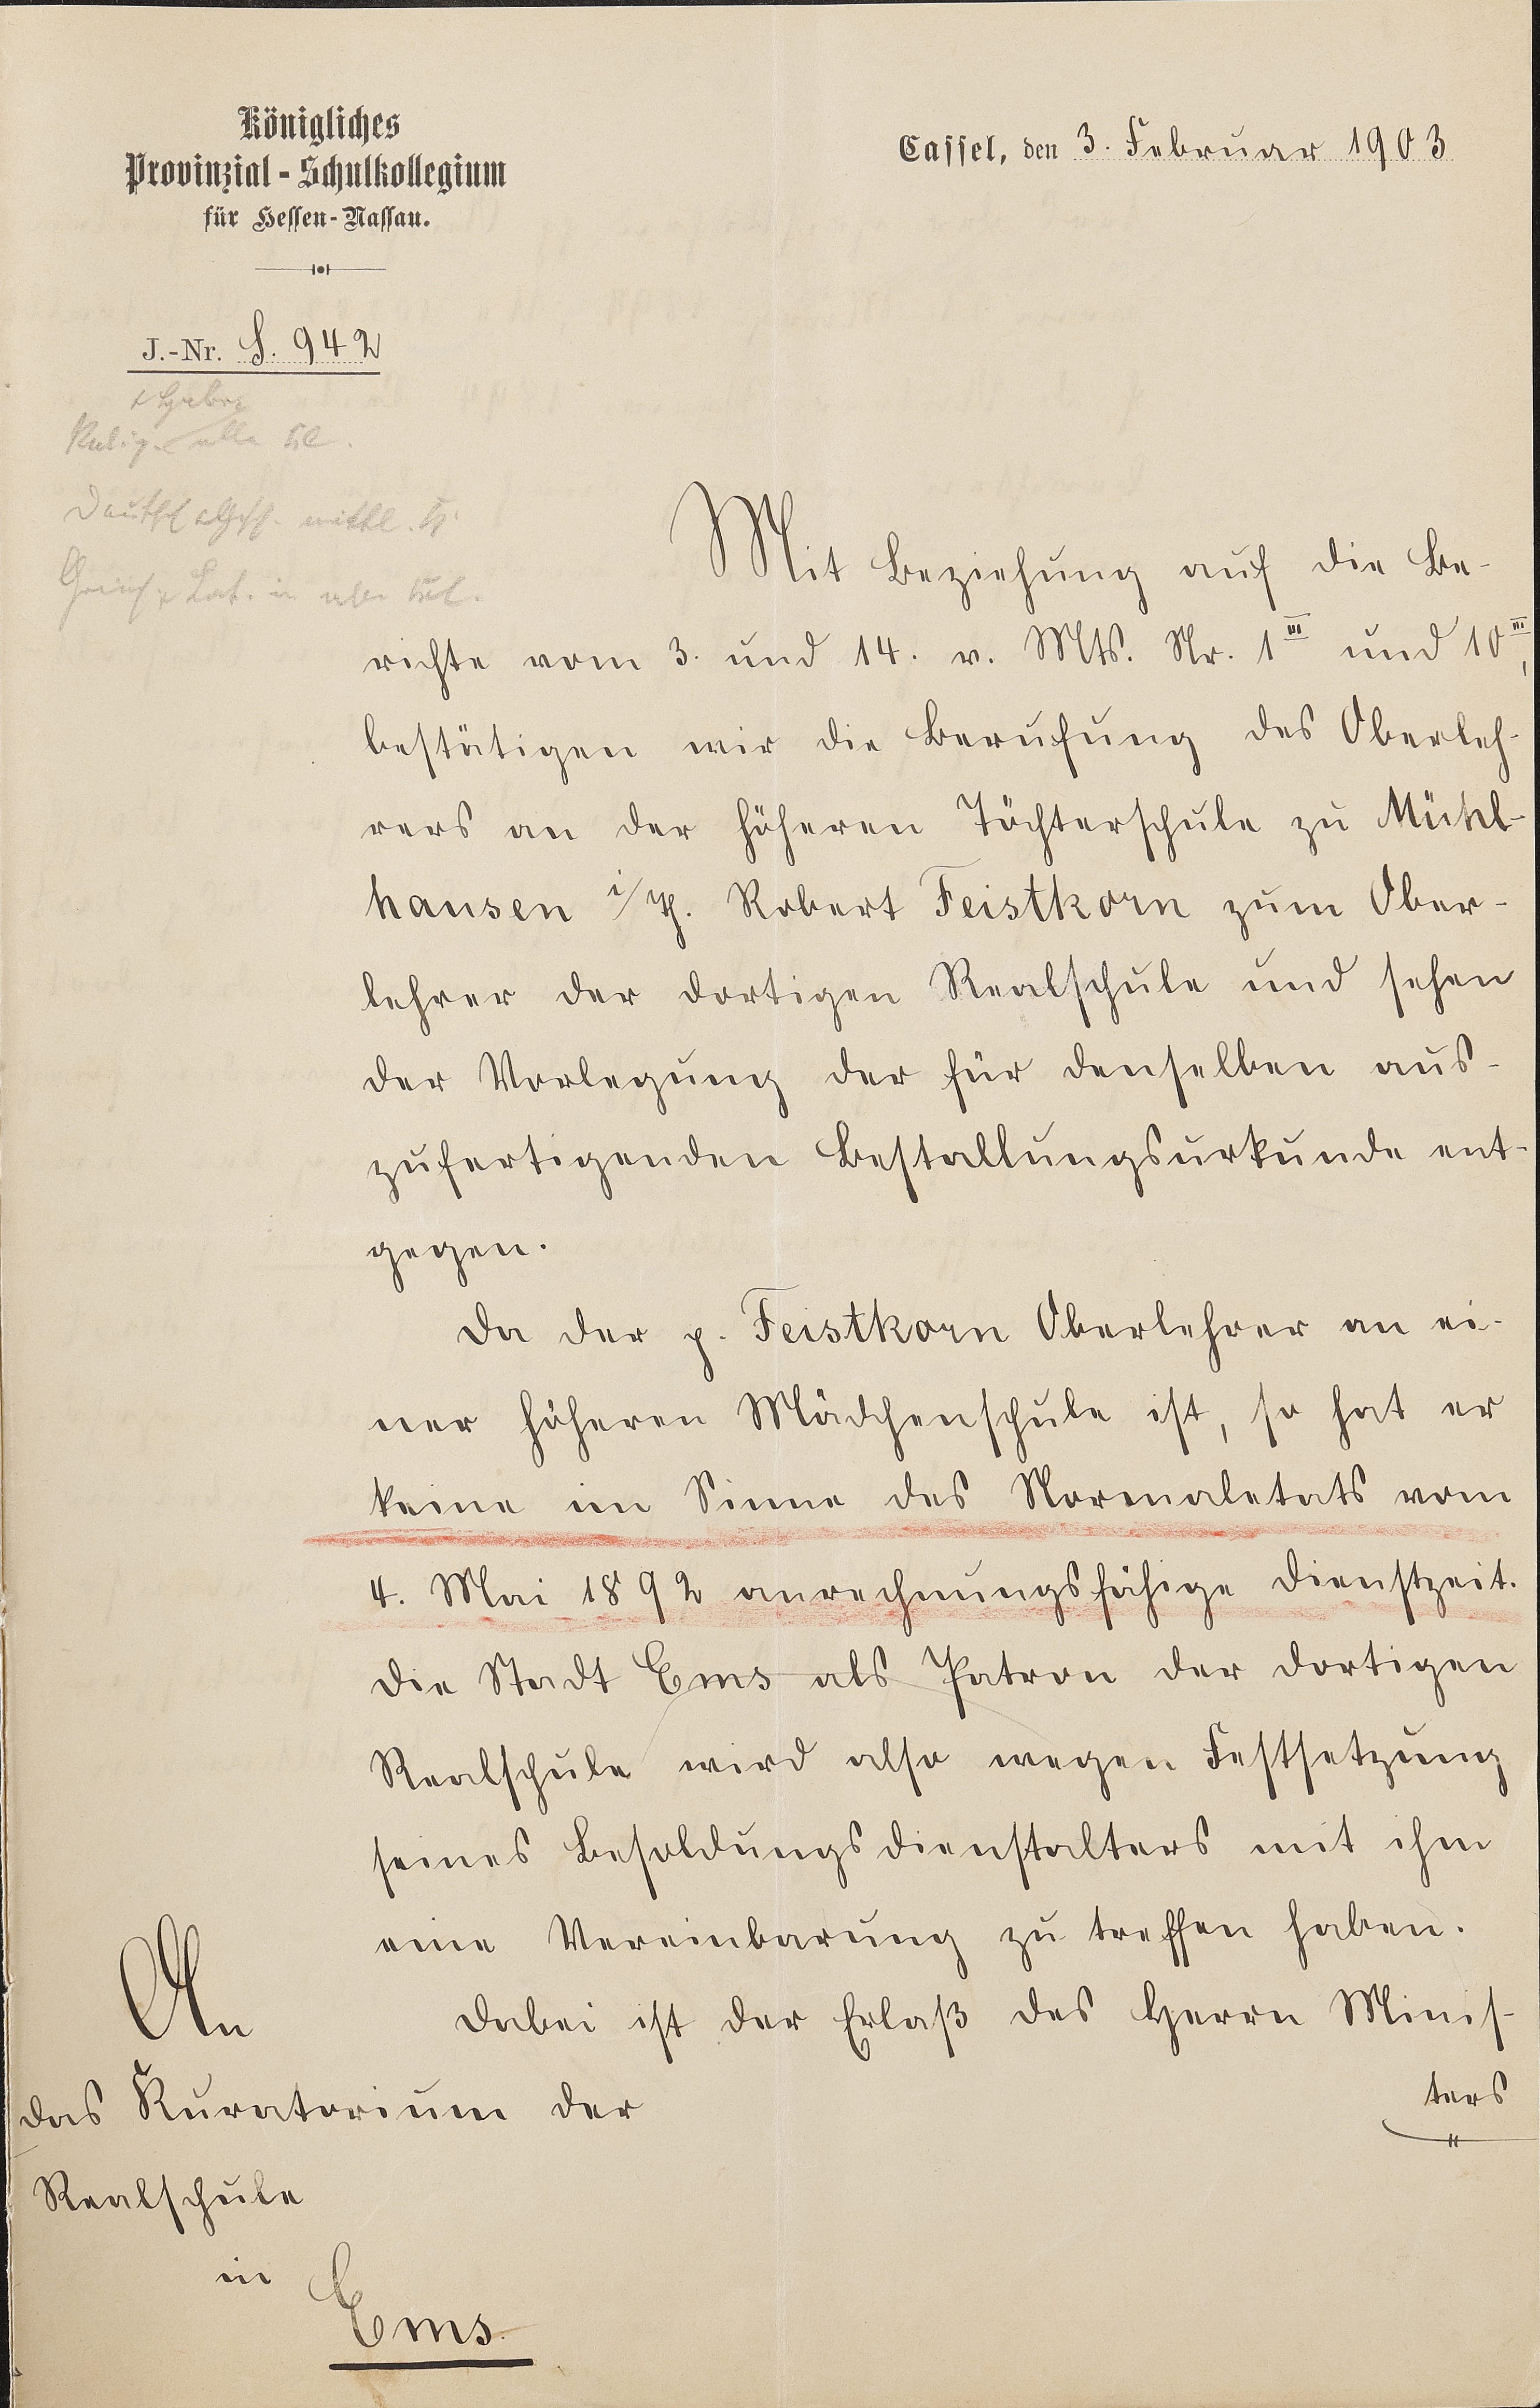 Königliches
Provinzial-Schulkollegium
für Hessen-Nassau.
Cassel, den 3. Februar 1903
J.-Nr. S. 942
+ Hebr.
Relig. alle Kl.
Deutsch mittl. Kl.
Griech. + Lat. in
Mit Beziehung auf die Be-
richte vom 3. und 14. v. Mts. Nr. 1 III und 10 III,
bestätigen wir die Berufung des Oberleh-
rers an der höheren Töchterschule zu Mühl-
hausen i/Th. Robert Feistkorn zum Ober-
lehrer der dortigen Realschule und sehen
der Vorlegung der für denselben aus-
zufertigenden Bestallungsurkunde ent-
gegen.
Da der p. Feistkorn Oberlehrer an ei-
ner höheren Mädchenschule ist, so hat er
keine im Sinne des Normaletats vom
4. Mai 1892 anrechnungsfähige Dienstzeit.
Die Stadt Ems als Patron der dortigen
Realschule wird also wegen Festsetzung
seines Besoldungsdienstalters mit ihm
eine Vereinbarung zu treffen haben.
Dabei ist der Erlaß des Herrn Minis-
ters
An
das Kuratorium der
Realschule
in
Ems.